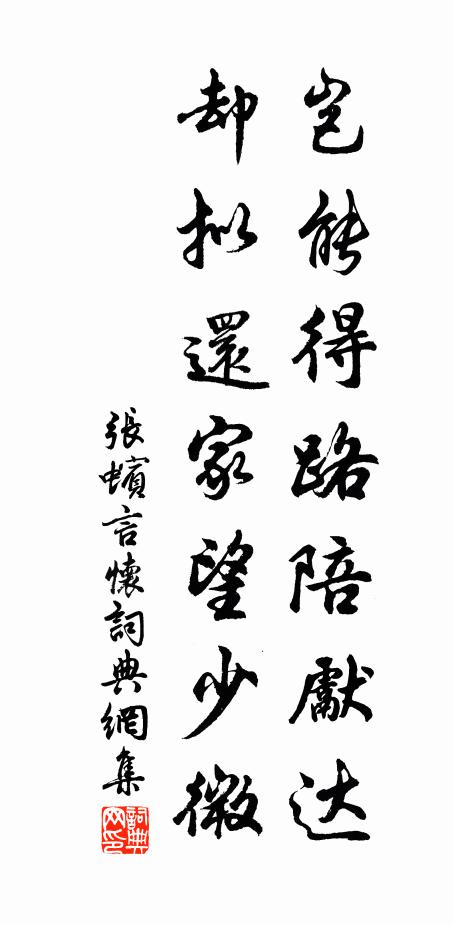 岂能得路陪献达
却拟還家望少微
張蠙言懷詞典網集
詞典网印